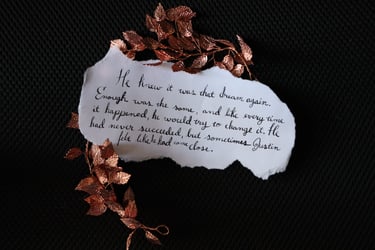 He knew it was that dream again.
Enough was the same, and like every time
it happened, he would try to change it. He
had never succeeded, but sometimes Justin
felt like he had come close.